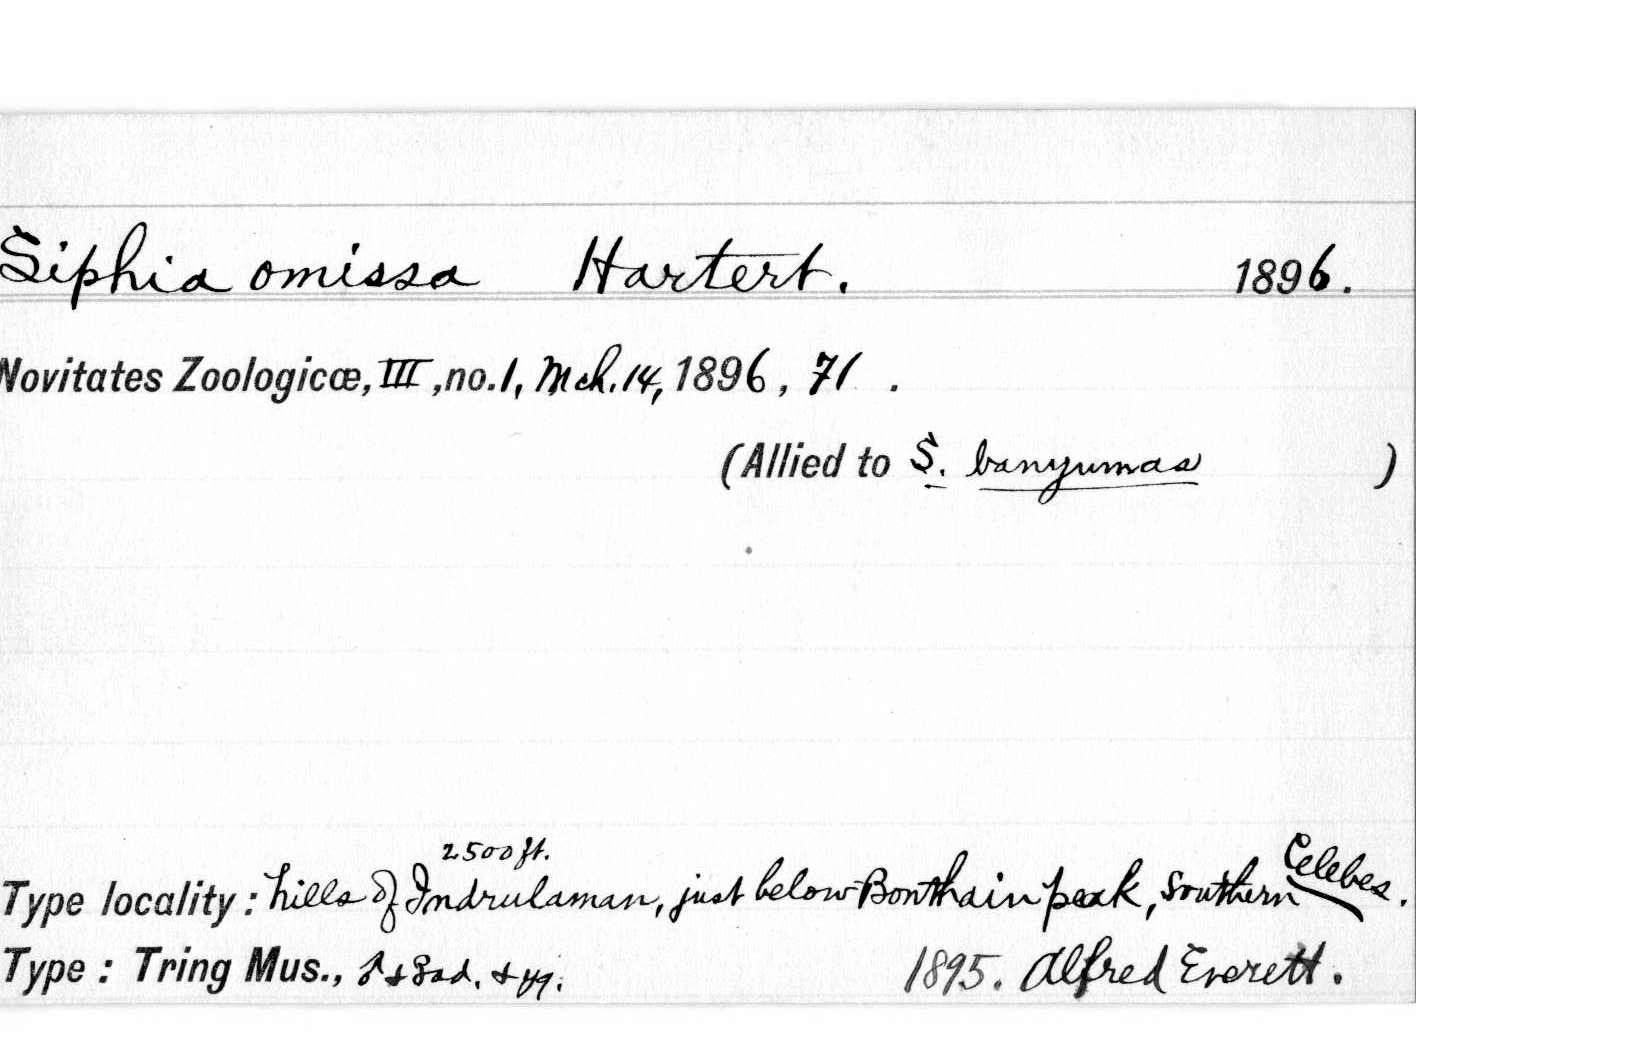 Siphia omissa Hartert. 1896.
Novitates Zoologicæ, III, no. 1, Mch. 14, 1896, 71 .
(Allied to S. banyumas )
2500 ft.
Type locality: hills of Indrulaman, just below Bonthain peak, Southern Celebes.
Type: Tring Mus., ♂ + ♀ ad. + yg. 1895. Alfred Everett.